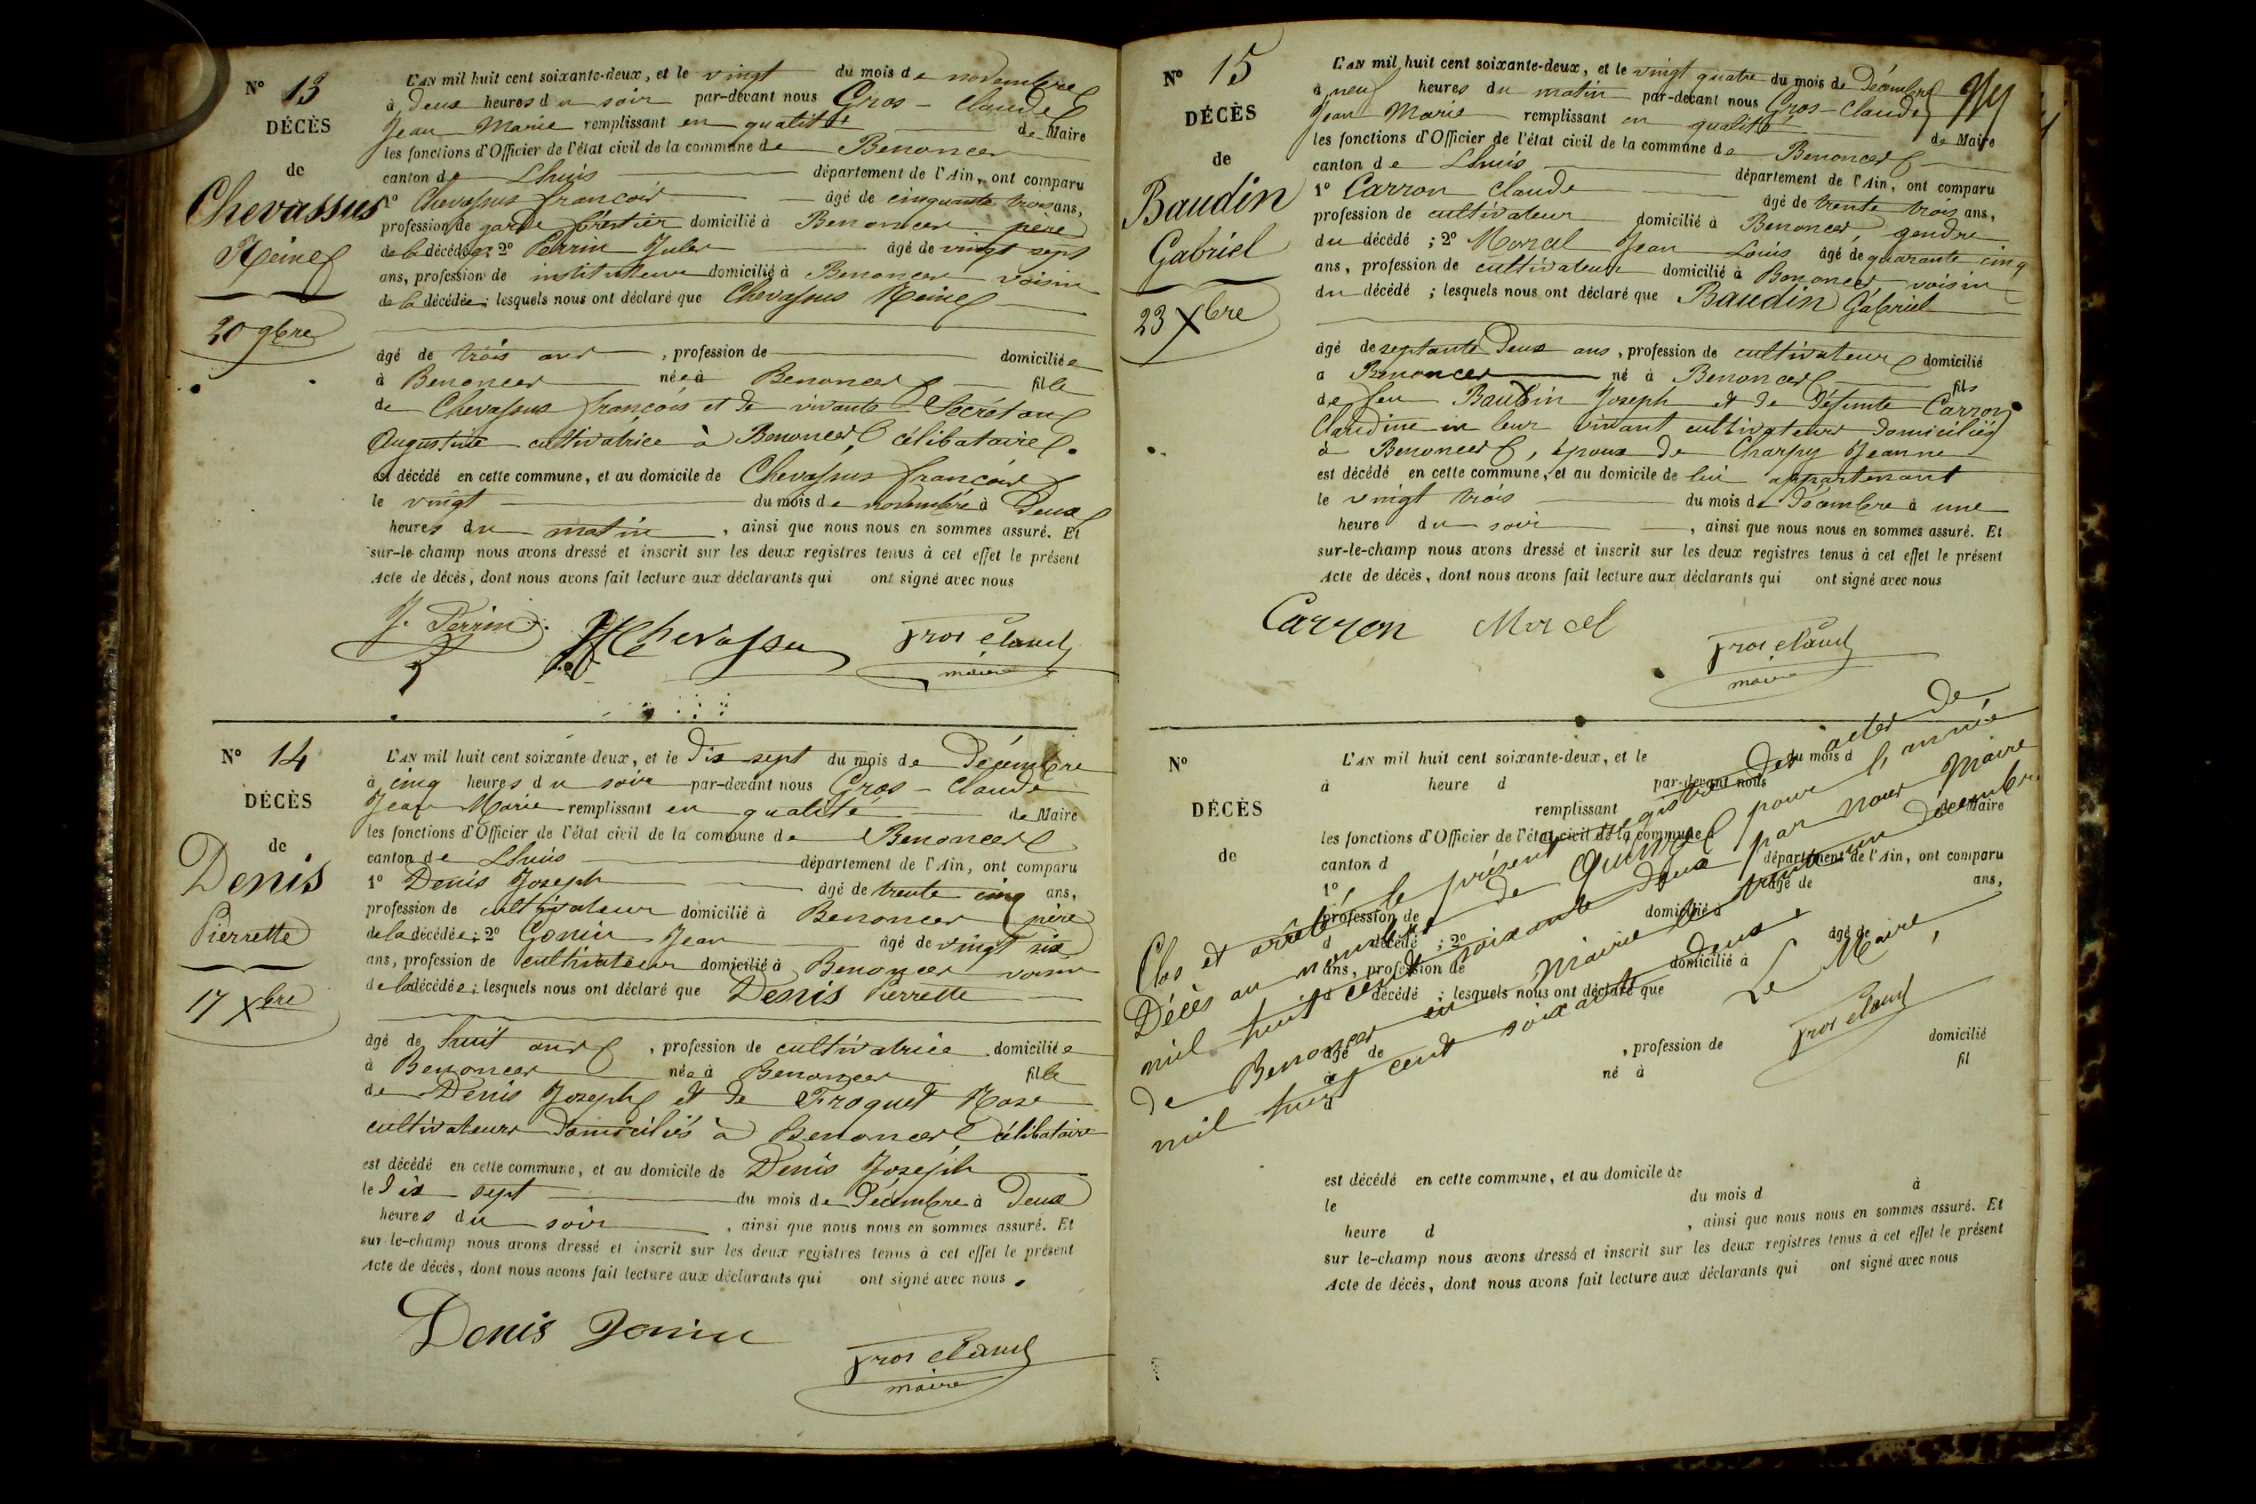 N° 13
DÉCÈS
de
Chevassus
Reine
20 9bre
L'AN mil huit cent soixante-deux, et le vingt du mois de novembre
à deux heures du soir par-devant nous Gros-Claude
Jean Marie remplissant en qualité de Maire
les fonctions d'Officier de l'état civil de la commune de Benonces
canton de Lhuis département de l'Ain, ont comparu
1° Chevassus françois âgé de cinquante trois ans,
profession de garde forestier domicilié à Benonces père
de la décédée; 2° Perrin Jules âgé de vingt sept
ans, profession de instituteur domicilié à Benonces voisin
de la décédée; lesquels nous ont déclaré que Chevassus Reine
âgé de trois ans, profession de domiciliée
à Benonces née à Benonces fille
de Chevassus françois et de vivante Secrétan
Augustine cultivatrice à Benonces célibataire.
est décédé en cette commune, et au domicile de Chevassus françois
le vingt du mois de novembre à deux
heures du matin, ainsi que nous nous en sommes assuré. Et
sur-le-champ nous avons dressé et inscrit sur les deux registres tenus à cet effet le présent
Acte de décès, dont nous avons fait lecture aux déclarants qui ont signé avec nous
J. Perrin Chevassu Gros Claud
maire
N° 14
DÉCÈS
de
Denis
Pierrette
17 Xbre
L'AN mil huit cent soixante-deux, et le dix sept du mois de Décembre
à cinq heures du soir par-devant nous Gros-Claude
Jean Marie remplissant en qualité de Maire
les fonctions d'Officier de l'état civil de la commune de Benonces
canton de Lhuis département de l'Ain, ont comparu
1° Denis Joseph âgé de trente cinq ans,
profession de cultivateur domicilié à Benonces père
de la décédée; 2° Gonin Jean âgé de vingt six
ans, profession de cultivateur domicilié à Benonces voisin
de la décédée; lesquels nous ont déclaré que Denis Pierrette
âgé de huit ans, profession de cultivatrice domiciliée
à Benonces née à Benonces fille
de Denis Joseph et de Froquet Rose
cultivateurs domiciliés à Benonces célibataire
est décédé en cette commune, et au domicile de Denis Joseph
le dix sept du mois de Décembre à deux
heures du soir, ainsi que nous nous en sommes assuré. Et
sur-le-champ nous avons dressé et inscrit sur les deux registres tenus à cet effet le présent
Acte de décès, dont nous avons fait lecture aux déclarants qui ont signé avec nous.
Denis Gonin
Gros Claud
maire
N° 15
DÉCÈS
de
Baudin
Gabriel
23 Xbre
L'AN mil huit cent soixante-deux, et le vingt quatre du mois de Décembre
à neuf heures du matin par-devant nous Gros-Claude
Jean Marie remplissant en qualité de Maire
les fonctions d'Officier de l'état civil de la commune de Benonces
canton de Lhuis département de l'Ain, ont comparu
1° Carron Claude âgé de trente trois ans,
profession de cultivateur domicilié à Benonces gendre
du décédé; 2° Marcel Jean Louis âgé de quarante cinq
ans, profession de cultivateur domicilié à Benonces, voisin
du décédé; lesquels nous ont déclaré que Baudin Gabriel
âgé de septante deux ans, profession de cultivateur domicilié
a Benonces né à Benonces fils
de feu Baudin Joseph et de défunte Carron
Claudine en leur vivant cultivateurs domiciliés
à Benonces, époux de Charpy Jeanne
est décédé en cette commune, et au domicile de lui appartenant
le vingt trois du mois de Décembre à une
heure du soir, ainsi que nous nous en sommes assuré. Et
sur-le-champ nous avons dressé et inscrit sur les deux registres tenus à cet effet le présent
Acte de décès, dont nous avons fait lecture aux déclarants qui ont signé avec nous
Carron Marcel
Gros Claud
maire
N°
DÉCÈS
de
L'AN mil huit cent soixante-deux, et le du mois d
à heure d par-devant nous
remplissant de Maire
les fonctions d'Officier de l'état civil de la commune d
canton d département de l'Ain, ont comparu
1° âgé de ans,
profession de domicilié à
d décédé; 2° âgé de
ans, profession de domicilié à
d décédé; lesquels nous ont déclaré que
Clos et arrêté le présent registre des actes de
Décès au nombre de quinze pour l'année
mil huit cent soixante deux par nous Maire
de Benonces en Mairie le trente un décembre
mil huit cent soixante deux.
Le Maire,
Gros Claud
âgé de, profession de domicilié
à né à fil
d
est décédé en cette commune, et au domicile de
le du mois d à
heure d, ainsi que nous nous en sommes assuré. Et
sur le-champ nous avons dressé et inscrit sur les deux registres tenus à cet effet le présent
Acte de décès, dont nous avons fait lecture aux déclarants qui ont signé avec nous